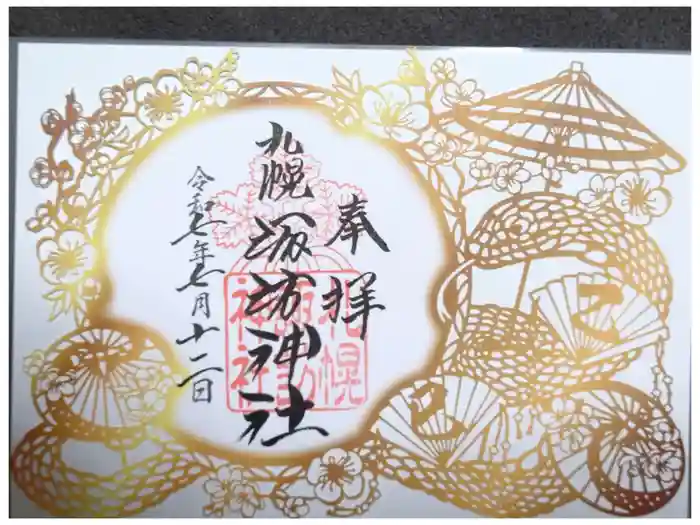 奉拝
札幌諏訪神社
令和七年七月十二日
札幌
諏訪
神社
乙
巳